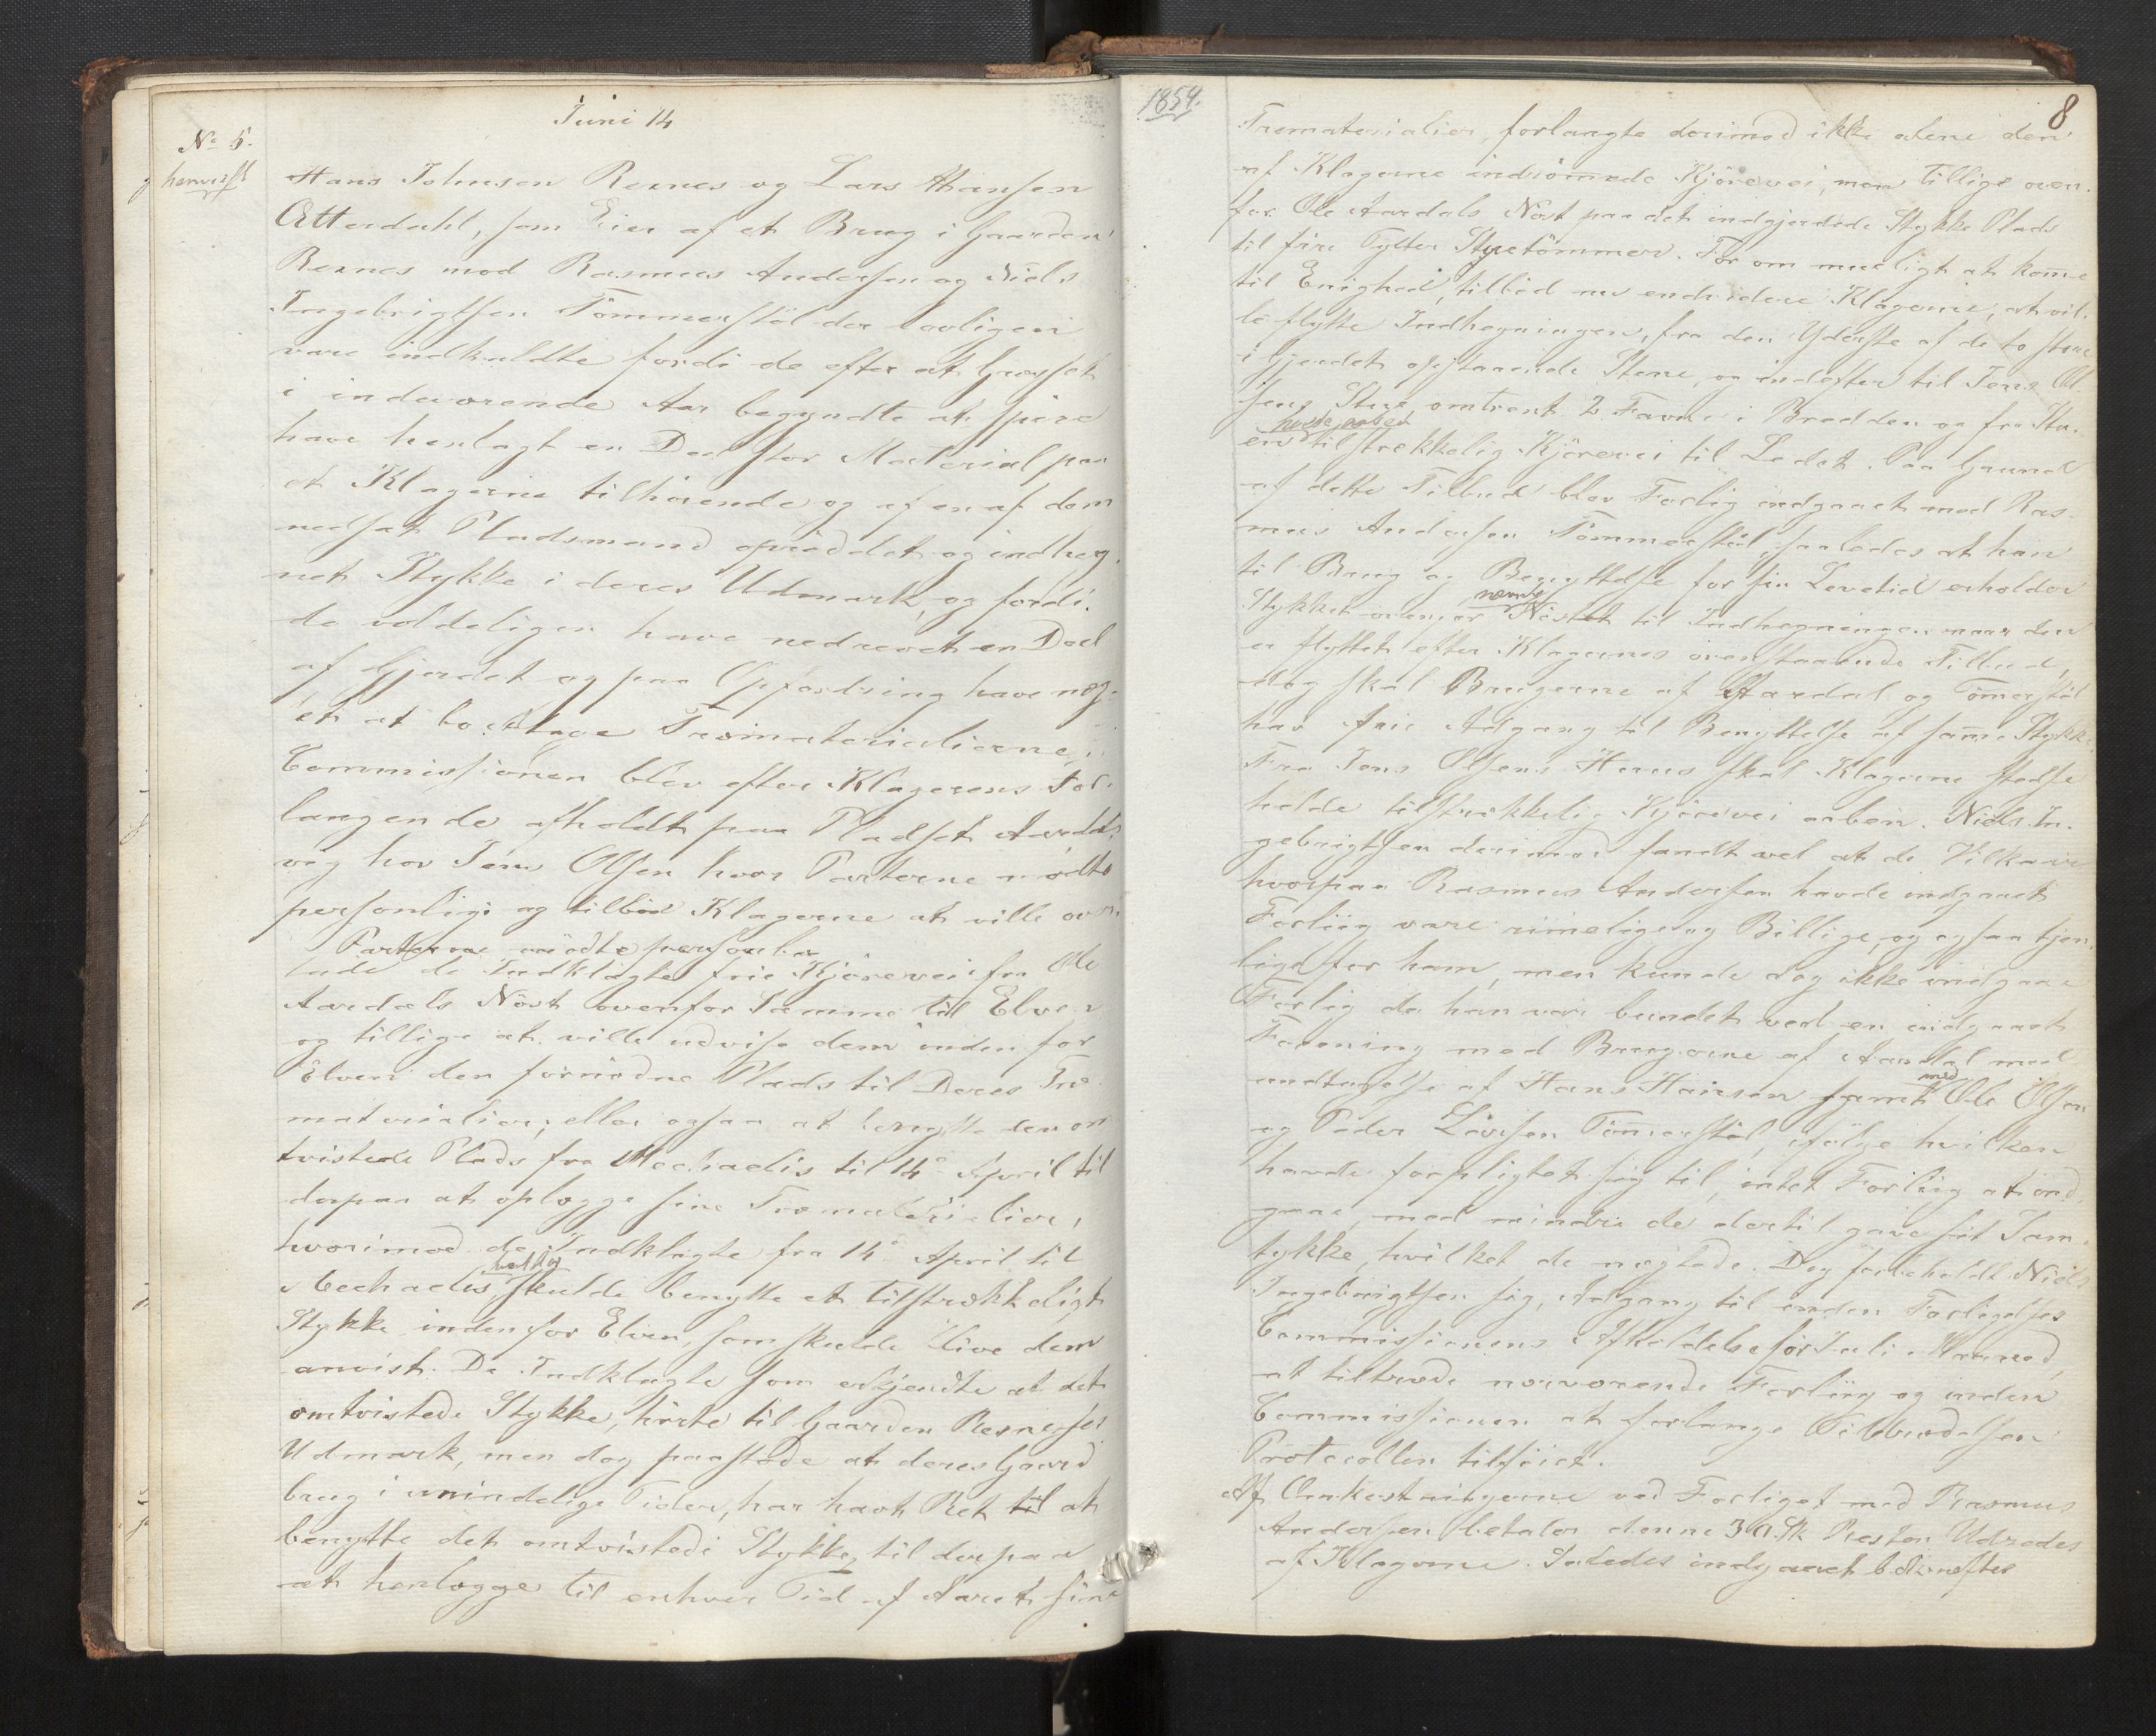 Juni 14
No 5.
henvist
Hans Johnsen Rexnes og Lars Hansen
Atterdahl, som Eier af et Brug i Gaarden
Rexnes mod Rasmus Andersen og Niels
Ingebrigtsen Tömmerstöl der lovligen
vare indkaldte fordi de efter at Græsset
i indeværende Aar begyndte at spire
have henlagt en Deel stor Material paa
et Klagerne tilhörende og af en af dem
nedsat Pladsmand opröddet og indheg-
net Stykke i deres Udmark, og fordi
de voldeligen have nedrevet en Deel
af Gjerdet og paa Opfordring have neg-
tet at borttage Træmaterialierne,
Commissionen blev efter Klagerens For-
langende afholdt paa Pladset Aardals
vig hos Jens Olsen hvor Parterne mödte
personlig og tilböd Klagerne at ville over-
Parterne mödte personlig
lade de Indklagte frie Kjörevei fra Ole
Aardals Nöst ovenfor Samme til Elven
og tillige at ville udvise dem inden for
Elven den fornödne Plads til Deres Træ
materialier; eller ogsaa at benytte den om
tvistede Plads fra Mechaelis til 14de April til
derpaa at oplægge sine Træmaterialier,
hvorimod de Indklagte fra 14de April til
Mechaelis, skulde benytte et tilstrækkeligt
Stykke indenfor Elven, som skulde blive dem
anvist. De Indklagte som erkjendte at det
omtvistede Stykke, hörte til Gaarden Rexnes's
Udmark, men dog paastode at deres Gaard
brug i umindelige Tider, har havt Ret til at
benytte det omtvistede Stykke til derpaa
at henlægge til enhver Tid af Aaret sine
1854.
8
Træmaterialier, forlangte derimod ikke alene den
af Klagerne indrömmede Kjörevei, men tillige oven-
for Ole Aardals Nöst paa det indgjerdede Stykke Plads
til fire Tylter Styretömmer. For om mueligt at komme
til Enighed, tilböd nu endvidere Klagerne, at vil-
le flytte Indhegningen, fra den Yderste af de to store
i Gjerdet opstaaende Stene, og indefter til Jens Ol-
sens Stue omtrent 2 Favne i Bredden og fra Stu-
en tilstrekkelig Kjörevei til Ledet. Paa Grund
af dette Tilbud blev Forlig indgaaet med Ras-
mus Andersen Tömmerstöl, saaledes at han
til Brug og Benyttelse for sin Levetid erholder
nævnte
Stykket ovenfor Nöstet til Indhegningen naar den
er flyttet efter Klagernes ovenstaaende Tilbud,
dog skal Brugerne af Aardal og Tömerstöl
hav frie Adgang til Benyttelse af samme Stykke
Fra Jens Olsens Huus skal Klagerne stedse
holde tilstrækkelig Kjörevei aaben. Niels In-
gebrigtsen derimod fandt vel at de Vilkaar
hvorpaa Rasmus Andersen havde indgaaet
Forliig vare rimelige og Billige, og ogsaa tjen-
lige for ham, men kunde dog ikke indgaae
Forlig da han var bundet ved en indgaaet
Forening med Brugerne af Aardal med
med
undtagelse af Hans Hansen samt Ole Olsen
og Peder Larsen Tömmerstöl, ifölge hvilken
havde forpligtet sig til, intet Forliig at ind-
gaae, med mindre de dertil gave sit Sam-
tykke, hvilket de nægtede. Dog forbeholdt Niels
Ingebrigtsen sig, Adgang til inden Forligelses
Commissionens Afholdelse for Juli Maaned,
at tiltræde nærværende Forliig og inden
Commissionen at forlange Tiltrædelsen
Protocollen tilföiet.
Af Omkostningerne ved Forliget med Rasmus
Andersen betaler denne 30 Sk Resten Udredes
af Klagerne. Saaledes indgaaet bekræftes